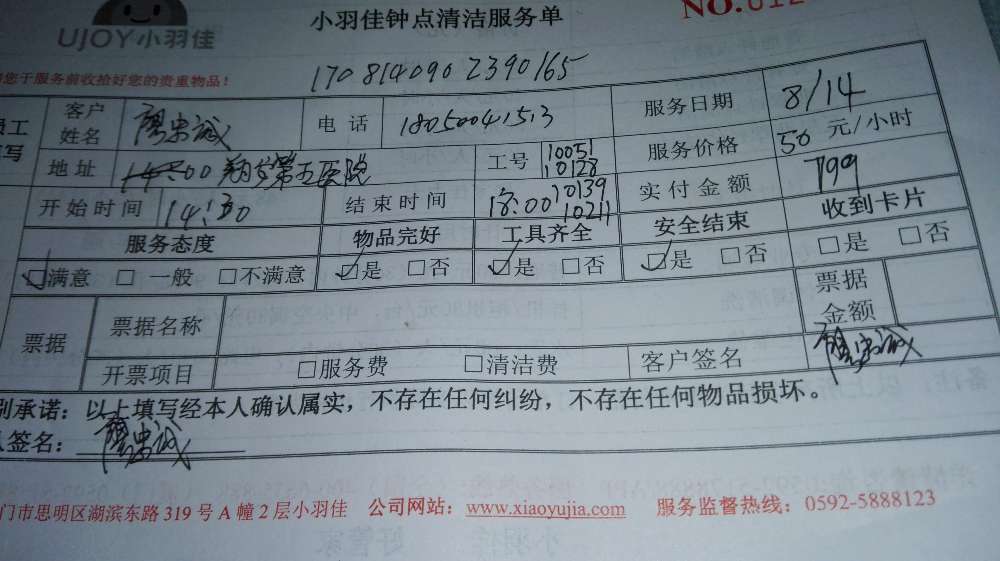 UJOY小羽佳
小羽佳钟点清洁服务单
NO.012
您于服务前收拾好您的贵重物品！
170814090239016​5
客户姓名 廖忠诚 电话 18050041513 服务日期 8/14
地址 翔安第五医院 工号 10051 10128 10139 10211 服务价格 50 元/小时
开始时间 14:30 结束时间 18:00 实付金额 799
服务态度 物品完好 工具齐全 安全结束 收到卡片
☑满意 □一般 □不满意 ☑是 □否 ☑是 □否 ☑是 □否 □是 □否
票据 票据名称 票据金额
开票项目 □服务费 □清洁费 客户签名 廖忠诚
别承诺：以上填写经本人确认属实，不存在任何纠纷，不存在任何物品损坏。
人签名：廖忠诚
门市思明区湖滨东路 319 号 A 幢 2 层小羽佳 公司网站：www.xiaoyujia.com 服务监督热线：0592-5888123